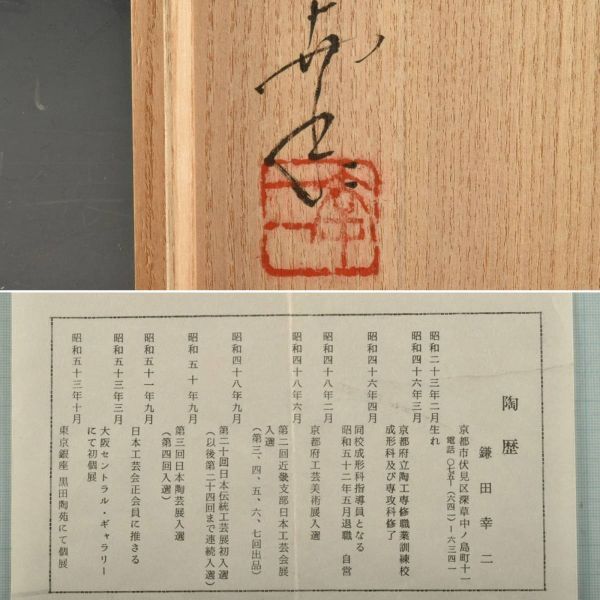 陶歴
鎌田幸二
京都市伏見区深草中ノ島町十一
電話 〇七五(六四二)一六三四一
昭和二十三年二月生れ
昭和四十六年三月
京都府立陶工専修職業訓練校
成形科及び専攻科修了
昭和四十六年四月
同校成形科指導員となる
昭和五十二年五月退職 自営
昭和四十八年二月
京都府工芸美術展入選
昭和四十八年六月
第二回近畿支部日本工芸会展
入選
(第三、四、五、六、七回出品)
昭和四十八年九月
第二十回日本伝統工芸展初入選
(以後第二十四回まで連続入選)
昭和五十年九月
第三回日本陶芸展入選
(第四回入選)
昭和五十一年九月
日本工芸会正会員に推さる
昭和五十三年三月
大阪セントラル・ギャラリー
にて初個展
昭和五十三年十月
東京銀座 黒田陶苑にて個展